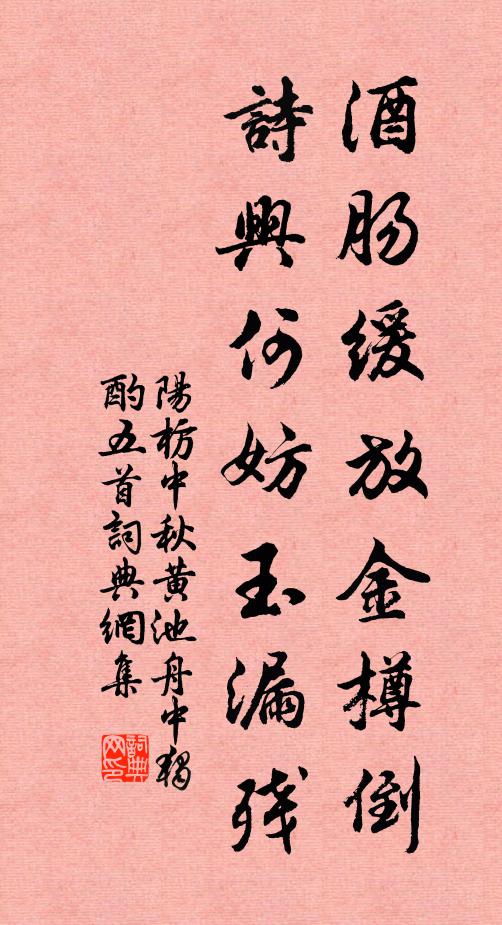 酒肠缓放金樽倒
詩興何妨玉漏残
陽枋中秋黄池舟中獨
酌五首詞典網集
詞典
网印